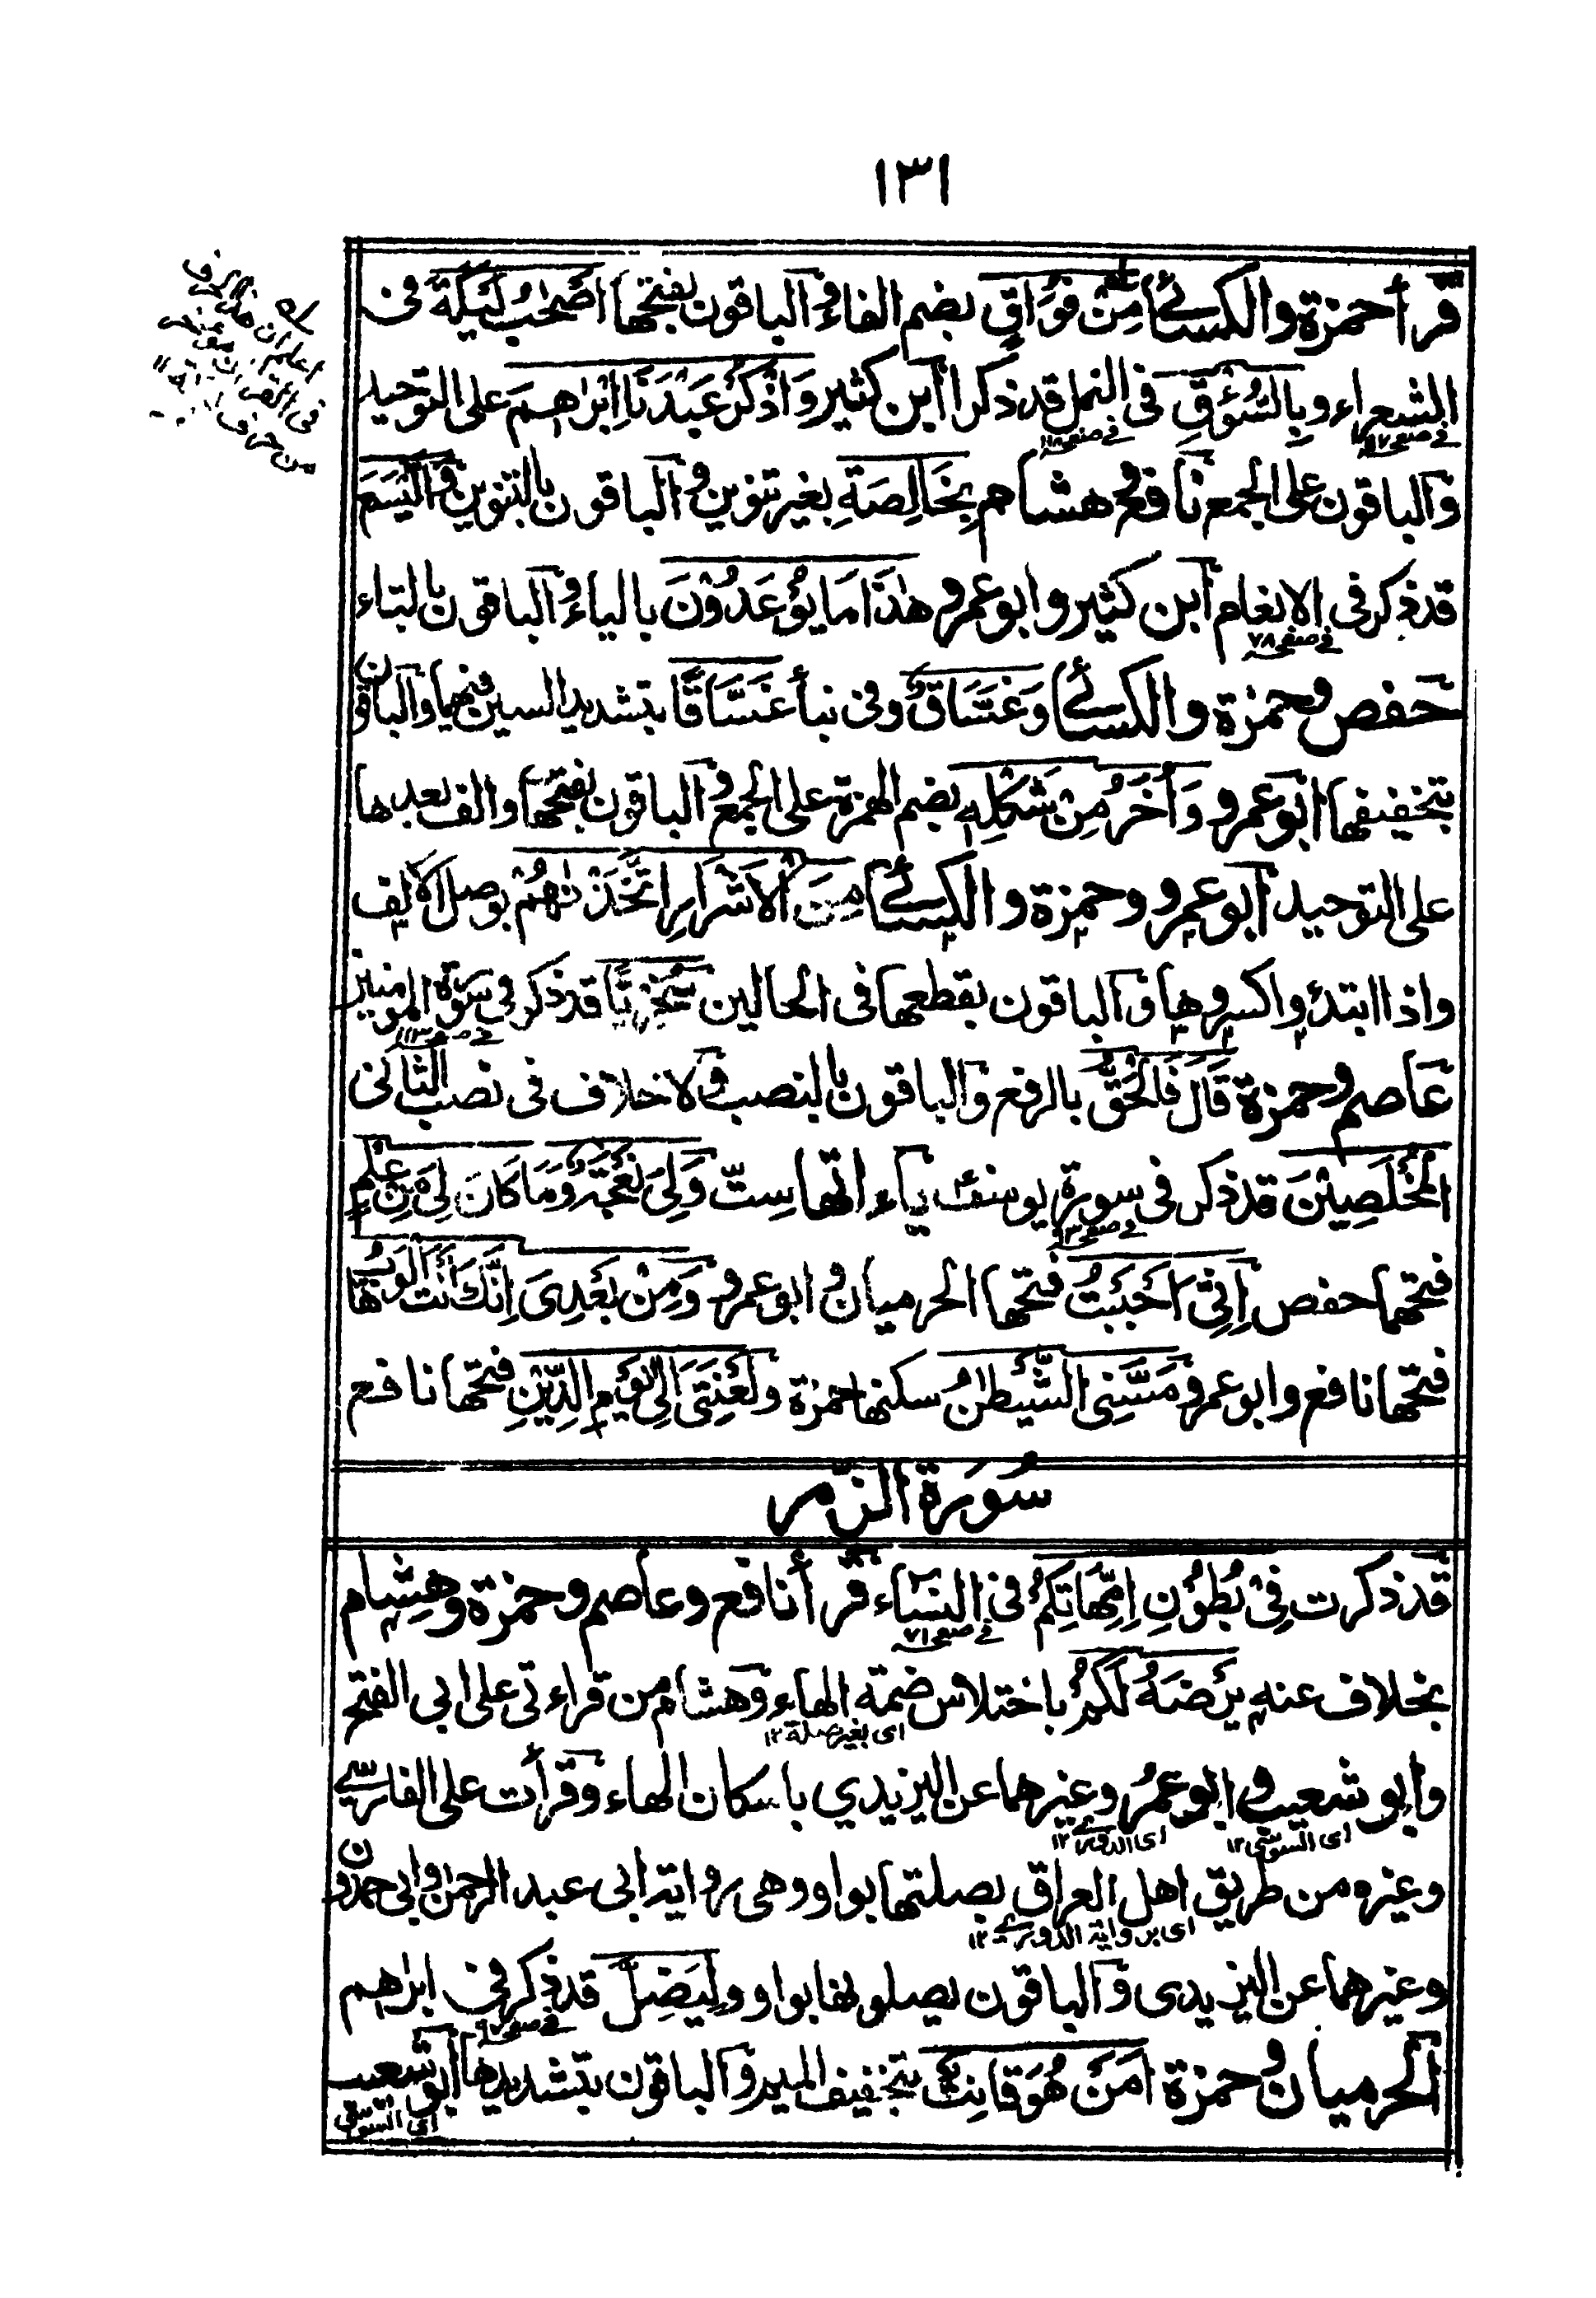 ١٣١
قرأ حمزة والكسائے مِنْ فُوَاقٍ بضم الفاء والباقون بفتحها اَصْحٰبُ لْـَٔيْكَةِ فى
الشعراء وبِالسُّؤْقِ فى النمل قد ذكرا ابن كثير وَاذْكُرْ عَبْدَنَا اِبْرٰهِيْمَ على التوحيد
فے صفحہ ١١٧
فے صفحہ ١١٨
والباقون على الجمع نافع وهشام بِخَالِصَةِ بغير تنوين والباقون بالتنوين وَالْيَسَعَ
قد ذكر فى الانعام ابن كثير وابو عمرو هٰذَا مَا يُوْعَدُوْنَ بالياء والباقون بالتاء
فے صفحہ ٧٨
حفص وحمزة والكسائے وَغَسَّاقٌ وفى نبأ غَسَّاقًا بتشديد السين فيهما والباقون
بتخفيفها ابو عمرو وَاُخَرُ مِنْ شَكْلِهٖ بضم الهمزة على الجمع والباقون بفتحها والف بعدها
على التوحيد ابو عمرو وحمزة والكسائے مِنَ الْاَشْرَارِ اتَّخَذْنٰهُمْ بوصل الالف
واذا ابتدؤا كسروها والباقون بقطعها فى الحالين سُخْرِيًّا قد ذكر فى سورة المومنين
فے صفحہ ١١٣
عاصم وحمزة قَالَ فَالْحَقُّ بالرفع والباقون بالنصب ولا خلاف فى نصب الثانى
الْمُخْلَصِيْنَ قد ذكر فى سورة يوسف ياءاتها ستّ وَلِىَ نَعْجَةٌ وَمَا كَانَ لِىَ مِنْ عِلْمٍ
فے صفحہ ٩٣
فتحهما حفص اِنِّىْ اَحْبَبْتُ فتحها الحرميان وابو عمرو وَمِنْ بَعْدِىَ اِنَّكَ اَنْتَ الْوَهَّابُ
فتحها نافع وابو عمرو مَسَّنِى الشَّيْطٰنُ سكنها حمزة ولَعْنَتِىَ اِلٰى يَوْمِ الدِّيْنِ فتحها نافع
سُورَة الزّمر
قد ذكرت فِىْ بُطُوْنِ اِمَّهَاتِكُمْ فى النساء قرأ نافع وعاصم وحمزة وهشام
فے صفحہ ٧١
بخلاف عنه يَرْضَهُ لَكُمْ باختلاس ضمة الهاء وهشام من قراءتى على ابى الفتح
اى بغير صلة ١٢
وابو شعيب وابو عمر وغيرهما عن اليزيدي باسكان الهاء وقرأت على الفارسے
اى السوسى ١٢
اى الدورے ١٢
وغيره من طريق اهل العراق بصلتها بواو وهى رواية ابى عبد الرحمن وابى حمدون
اى برواية الدورے ١٢
وغيرهما عن اليزيدى والباقون يصلونها بواو ولِيَضِلَّ قد ذكر فى ابراهيم
فے صفحہ ٩٧
الحرميان وحمزة اَمَنْ هُوَ قَانِتٌ بتخفيف الميم والباقون بتشديدها ابو شعيب
اى السوسى